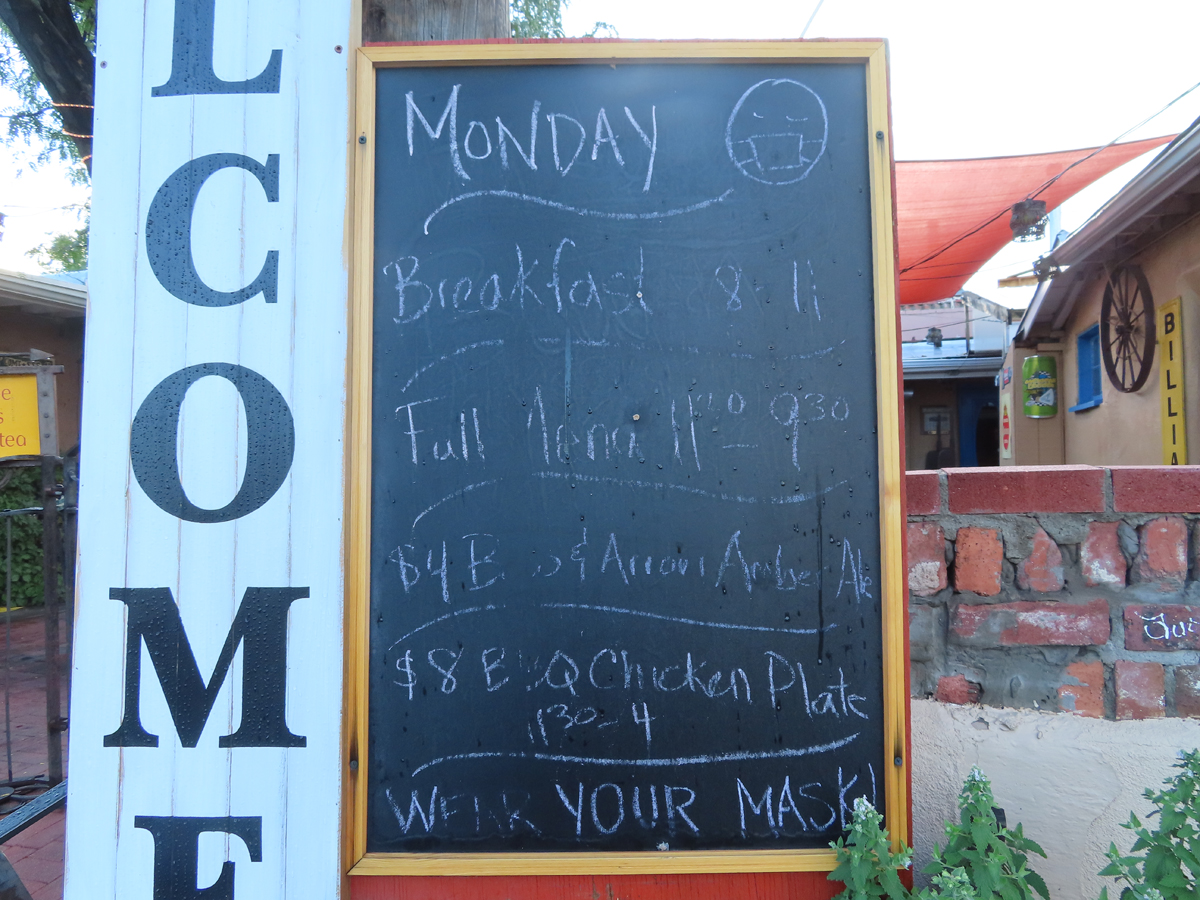 LCOME
MONDAY
Breakfast 8 - 11
Full Menu 11:30 - 9:30
$4 & Arrow Amber Ale
$8 BBQ Chicken Plate
11:30 - 4
WEAR YOUR MASK!
BILLIA